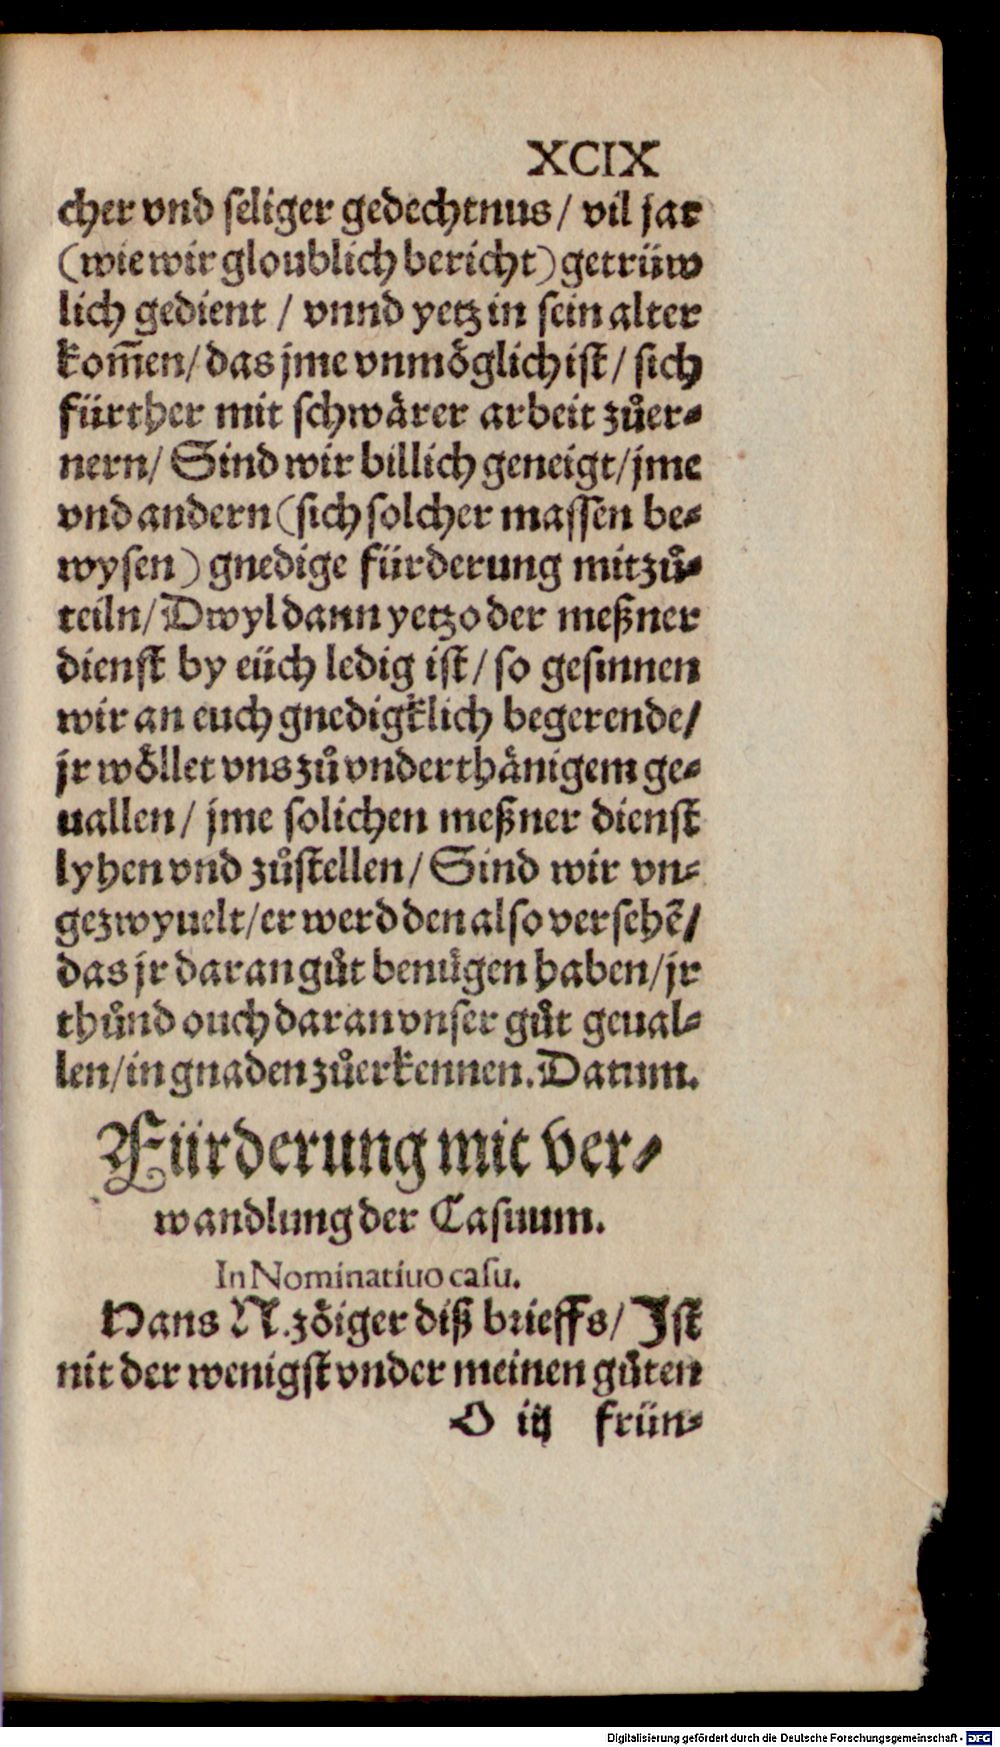 XCIX
cher vnd seliger gedechtnus / vil jar
(wie wir gloublich bericht) getrüw
lich gedient / vnnd yetz in sein alter
kom̃en / das jme vnmöglich ist / sich
fürther mit schwärer arbeit zůer-
nern / Sind wir billich geneigt / jme
vnd andern (sich solcher massen be-
wysen) gnedige fürderung mitzů-
teiln / Dwyl dann yetzo der meßner
dienst by eüch ledig ist / so gesinnen
wir an euch gnedigklich begerende /
jr wöllet vns zů vnderthänigem ge-
uallen / jme solichen meßner dienst
lyhen vnd zůstellen / Sind wir vn-
gezwyuelt / er werd den also versehẽ /
das jr daran gůt benügen haben / jr
thůnd ouch daran vnser gůt geual-
len / in gnaden zůerkennen. Datum.
Fürderung mit ver-
wandlung der Casuum.
In Nominatiuo casu.
Hans N. zöiger diß brieffs / Ist
nit der wenigst vnder meinen gůten
O iij frün-
Digitalisierung gefördert durch die Deutsche Forschungsgemeinschaft - DFG